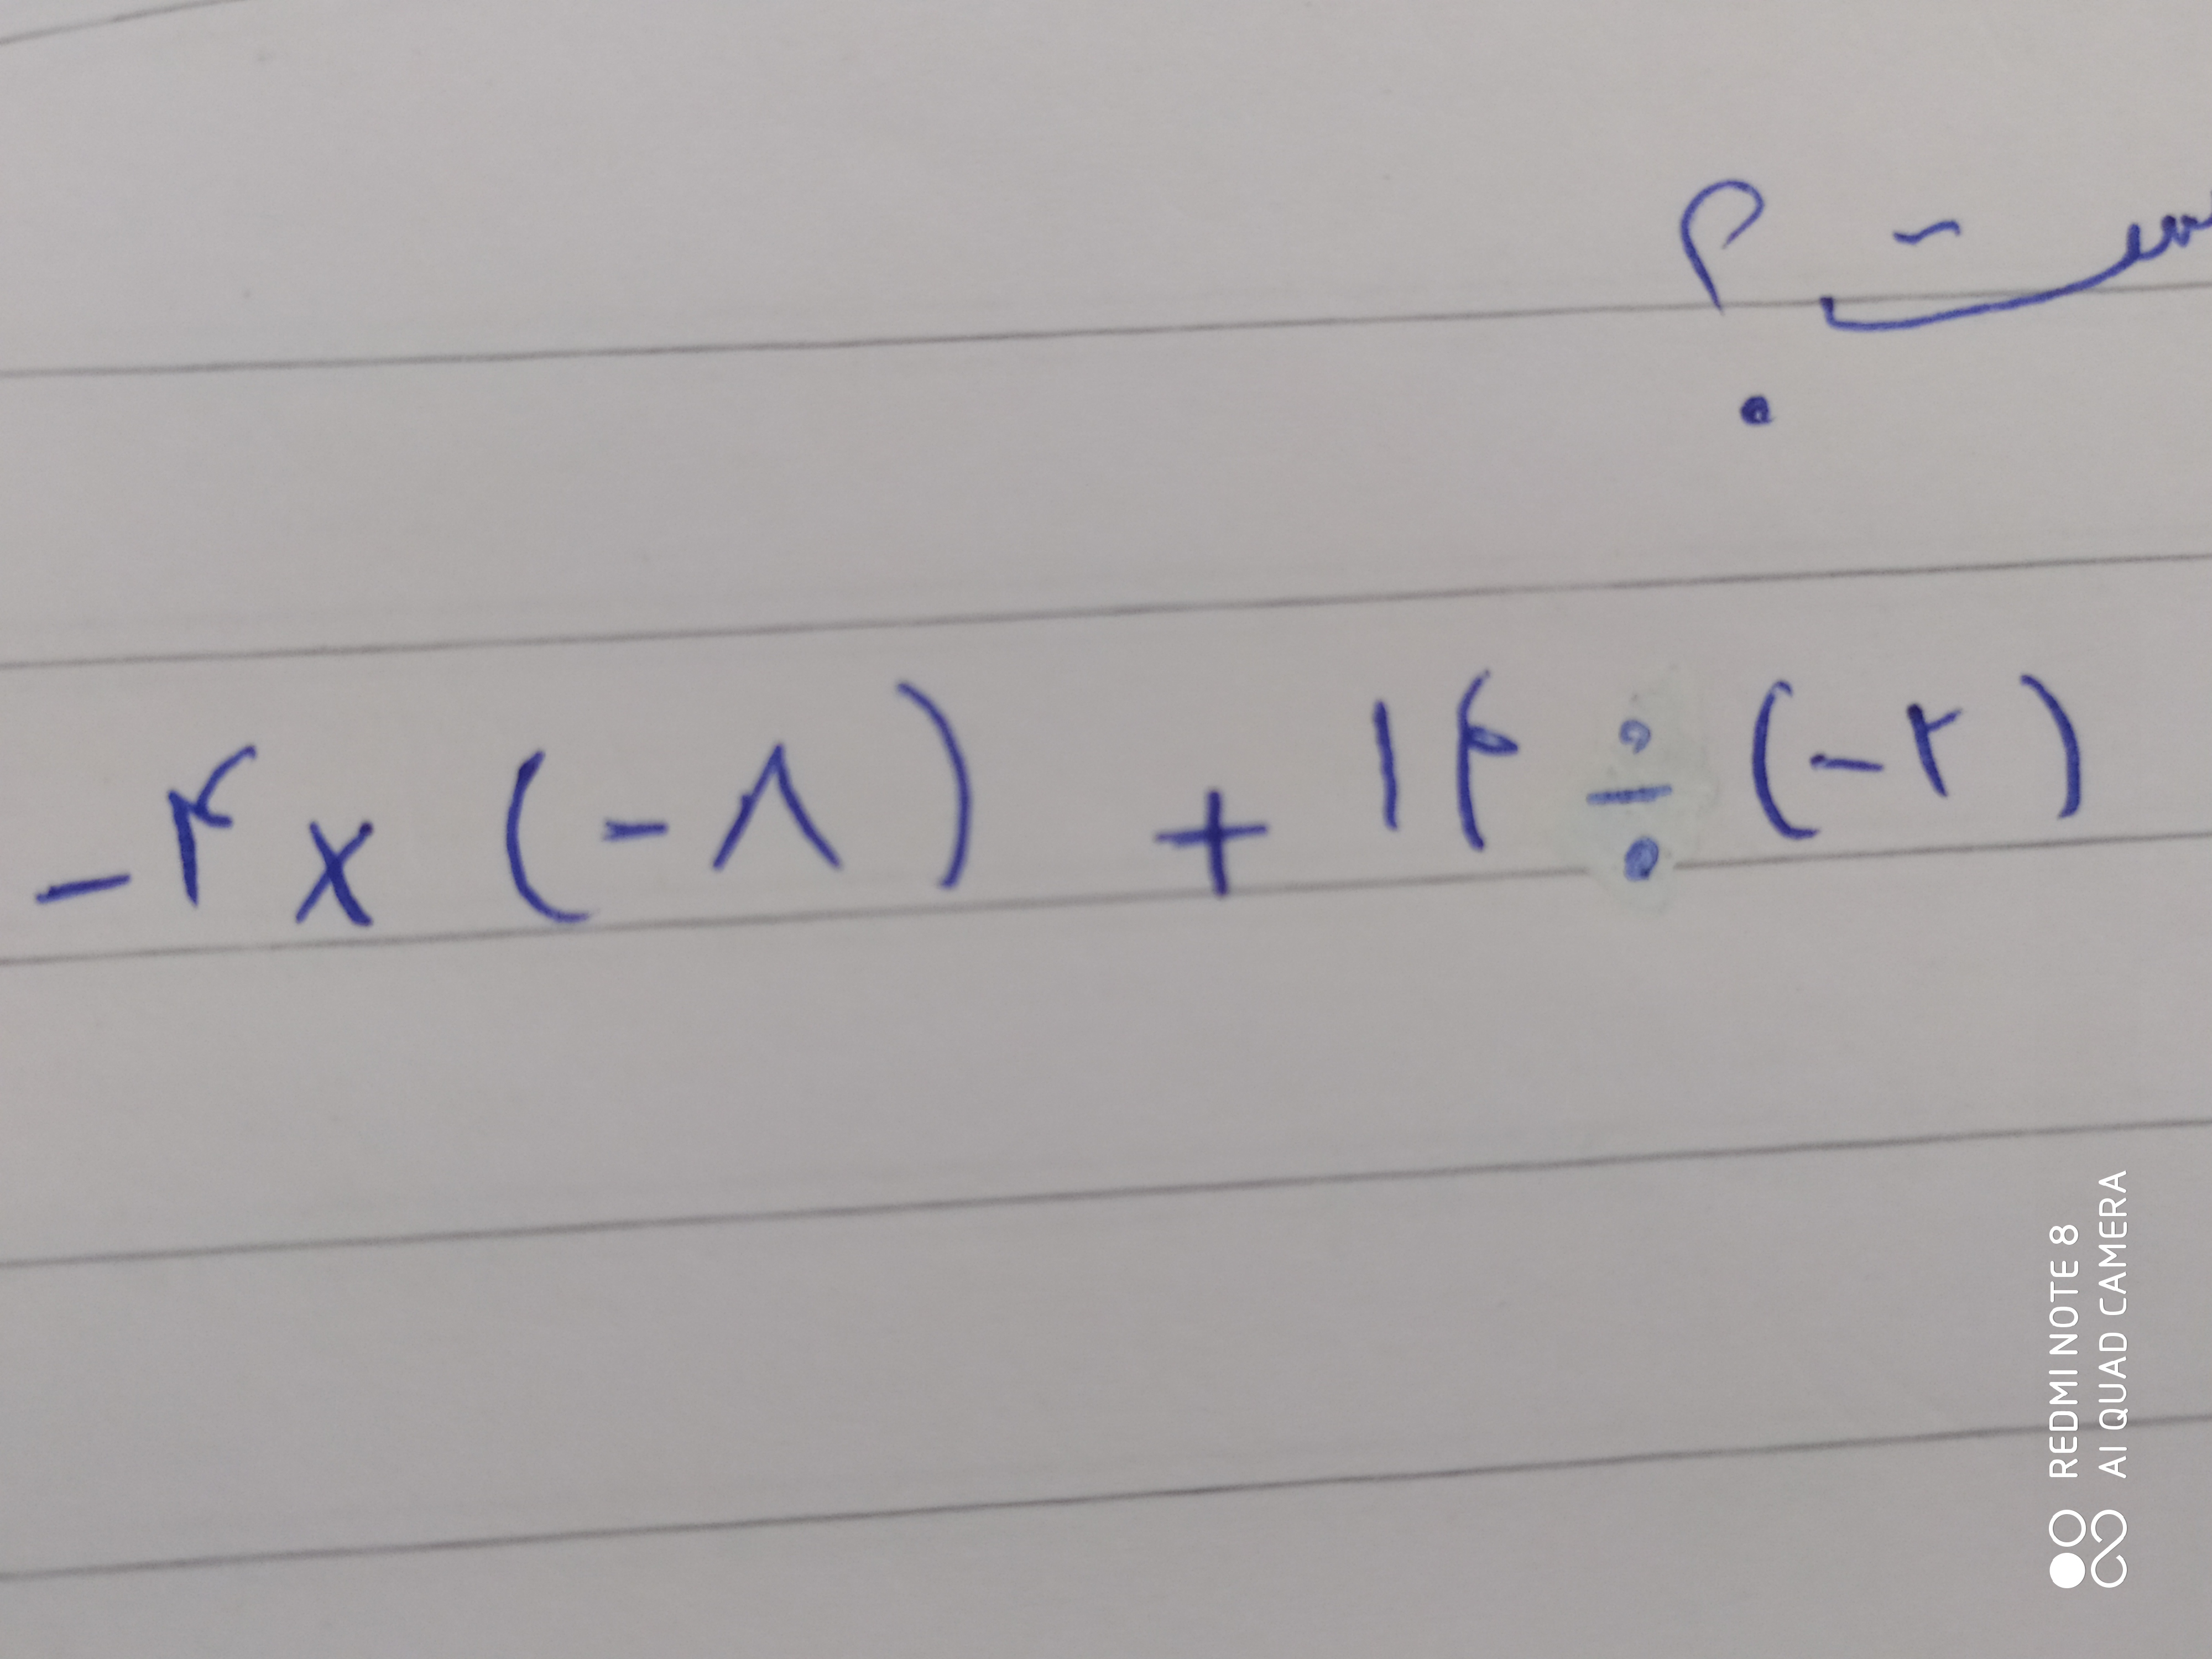 -۲ × (-۸) + ۱۴ ÷ (-۲)
REDMI NOTE 8
AI QUAD CAMERA